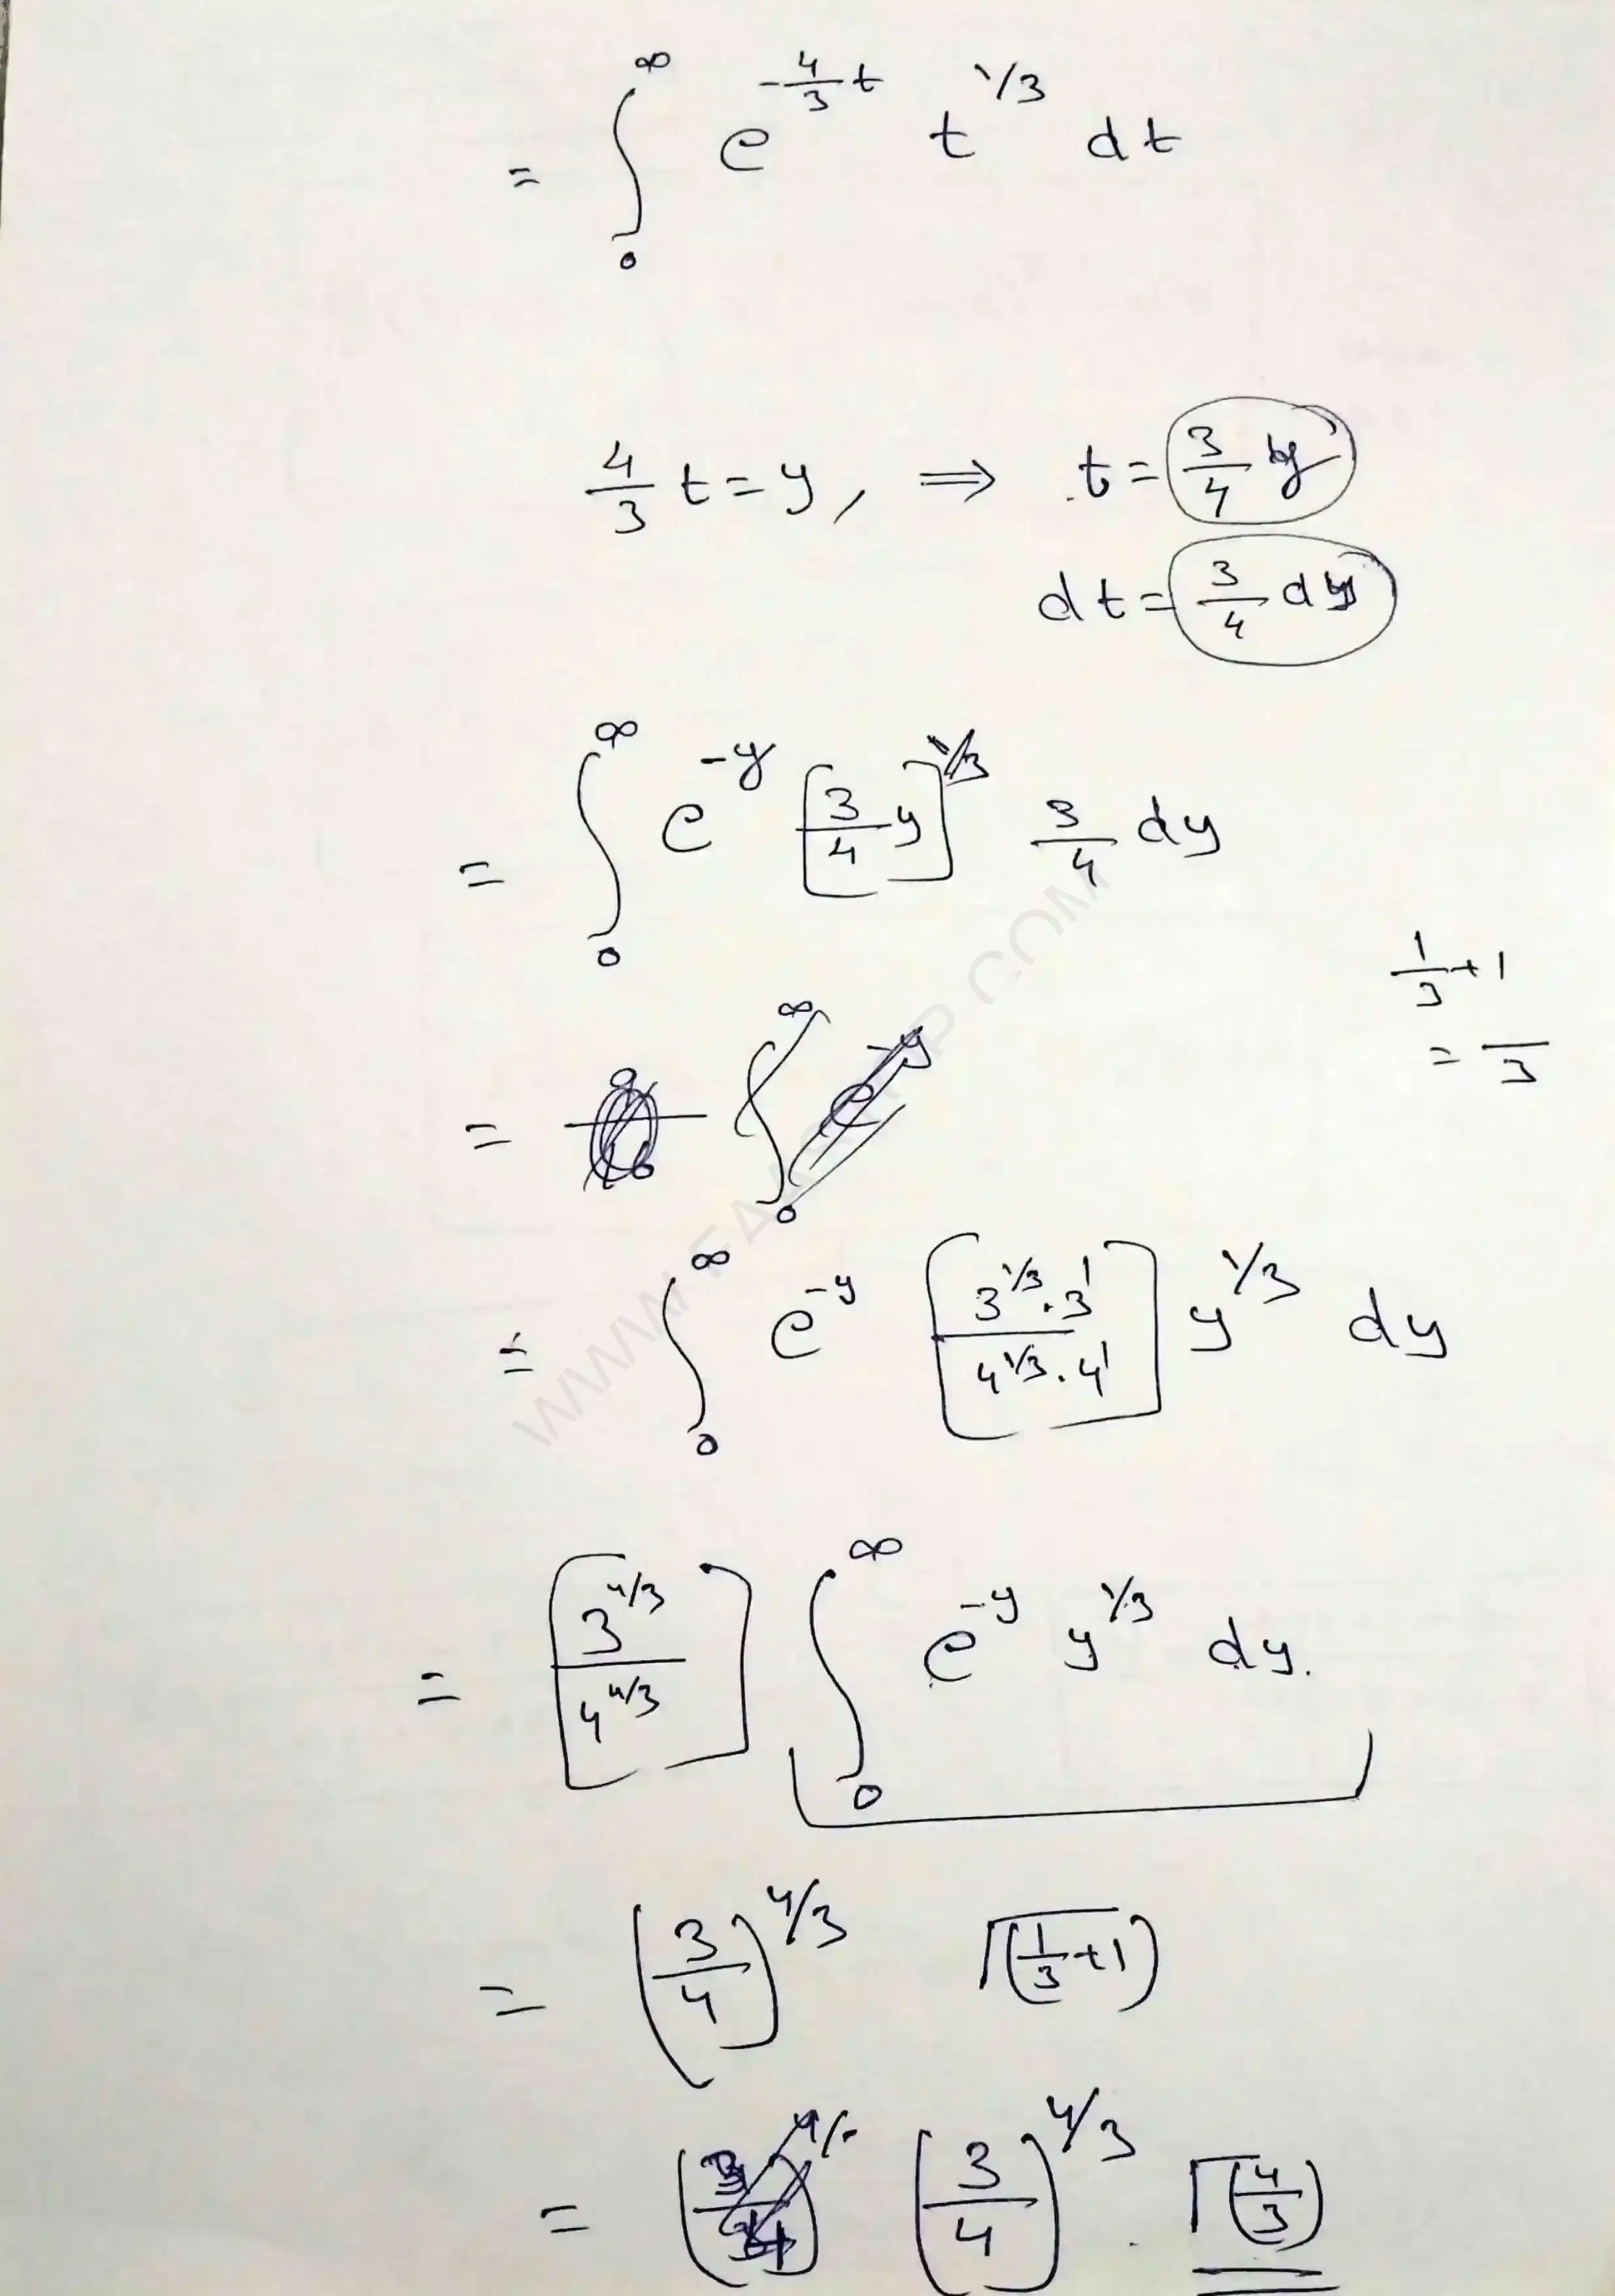 = ∫₀^∞ e^{-4/3 t} t^{1/3} dt
4/3 t = y, ⇒ t = 3/4 y
dt = 3/4 dy
= ∫₀^∞ e^{-y} [3/4 y]^{1/3} 3/4 dy
1/3 + 1
= /3
= ∫₀^∞ e^{-y}
= ∫₀^∞ e^{-y} [3^{1/3} · 3^1 / 4^{1/3} · 4^1] y^{1/3} dy
= [3^{4/3} / 4^{4/3}] ∫₀^∞ e^{-y} y^{1/3} dy.
= (3/4)^{4/3} Γ(1/3 + 1)
= (3/4)^{4/3} · Γ(4/3)